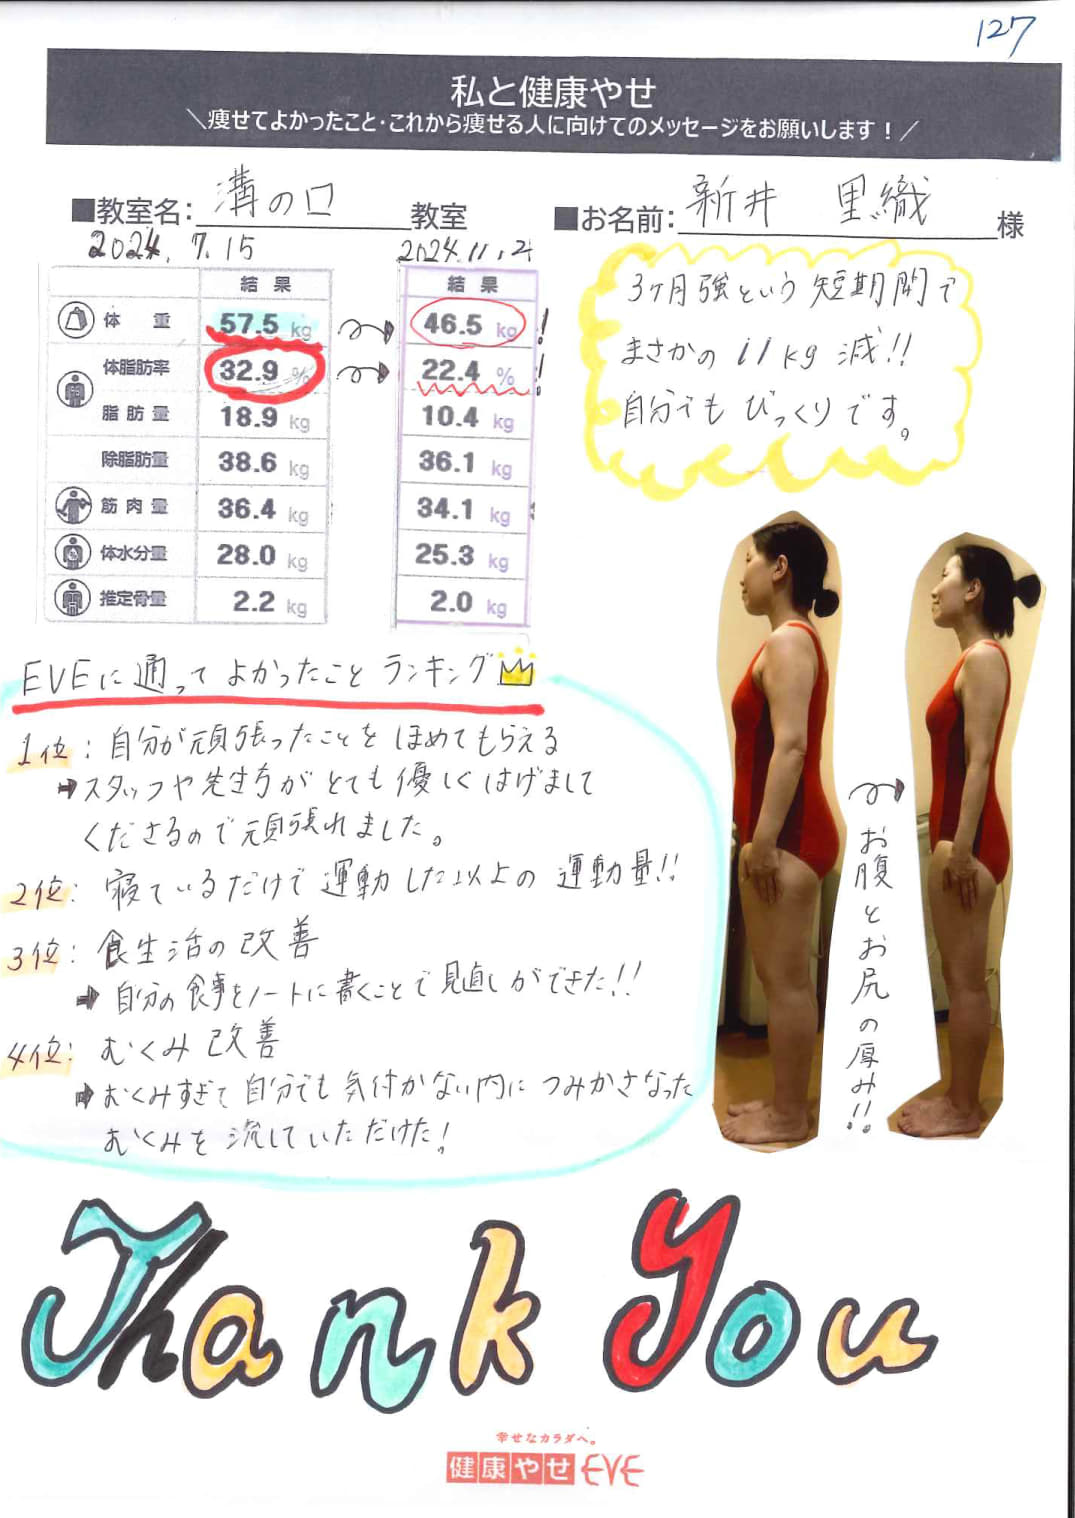 127
私と健康やせ
＼痩せてよかったこと・これから痩せる人に向けてのメッセージをお願いします！／
■教室名: 溝の口 教室
■お名前: 新井 里織 様
2024. 7. 15
2024.11.21
結果
結果
体重 57.5 kg 46.5 kg !
体脂肪率 32.9 % 22.4 % !
脂肪量 18.9 kg 10.4 kg
除脂肪量 38.6 kg 36.1 kg
筋肉量 36.4 kg 34.1 kg
体水分量 28.0 kg 25.3 kg
推定骨量 2.2 kg 2.0 kg
3ヶ月強という短期間で
まさかの 11kg 減!!
自分でも びっくりです。
EVEに通って よかったこと ランキング
1位: 自分が頑張ったことを ほめてもらえる
➡スタッフや先生方が とても優しくはげまして
くださるので頑張れました。
2位: 寝ているだけで 運動した以上の 運動量!!
3位: 食生活の改善
➡ 自分の食事をノートに書くことで見直しができた!!
4位: むくみ 改善
➡むくみすぎて 自分でも 気付かない内に つみかさなった
むくみを 流していただけた!
お腹とお尻の厚み!!
Thank You
幸せなカラダへ。
健康やせ EVE